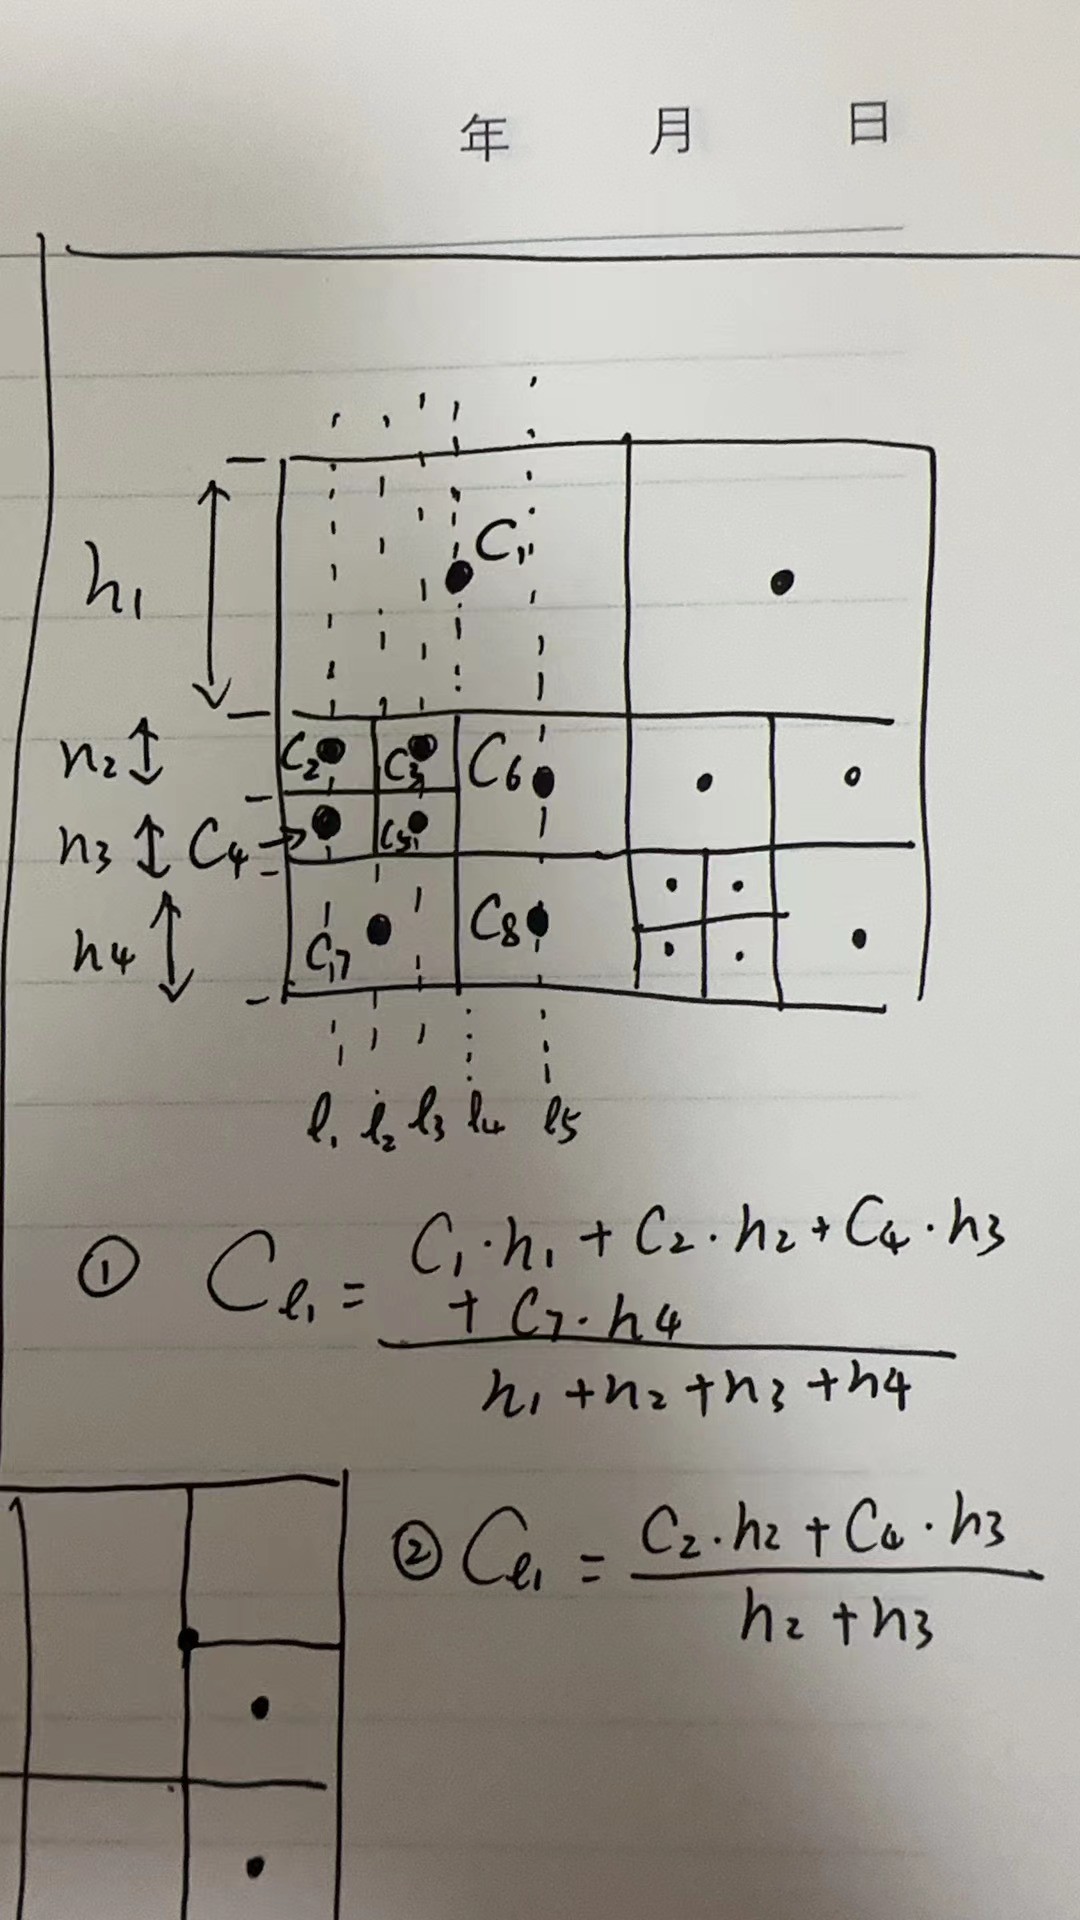 年 月 日
C₁
h₁
h₂ C₂ C₃ C₆
h₃ C₄ C₅
h₄ C₇ C₈
l₁ l₂ l₃ l₄ l₅
① Cl₁ = C₁·h₁ + C₂·h₂ + C₄·h₃
+ C₇·h₄
h₁ + h₂ + h₃ + h₄
② Cl₁ = C₂·h₂ + C₄·h₃
h₂ + h₃